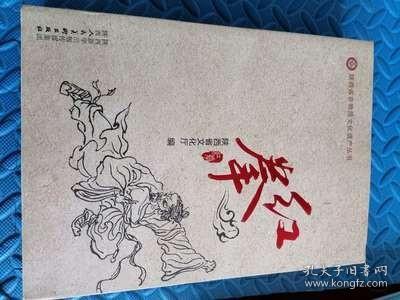 陕西省非物质文化遗产丛书
红拳
陕西省文化厅 编
陕西新华出版传媒集团
陕西人民美术出版社
孔夫子旧书网
www.kongfz.com